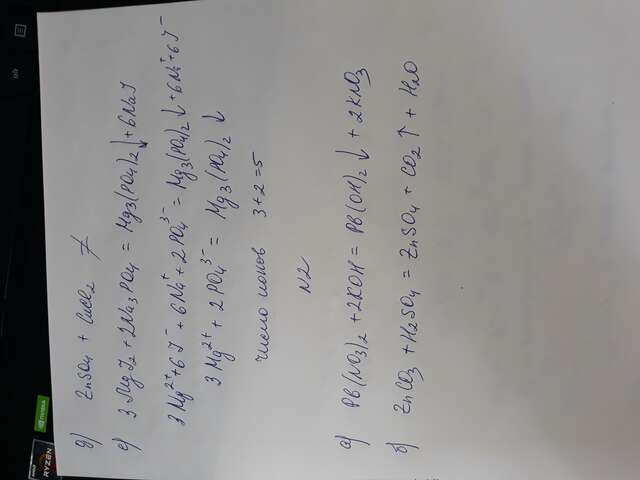 д) ZnSO4 + CuCl2 ≠
е) 3MgJ2 + 2Na3PO4 = Mg3(PO4)2↓ + 6NaJ
3Mg²⁺ + 6J⁻ + 6Na⁺ + 2PO4³⁻ = Mg3(PO4)2↓ + 6Na⁺ + 6J⁻
3Mg²⁺ + 2PO4³⁻ = Mg3(PO4)2↓
число ионов 3+2=5
N2
а) PB(NO3)2 + 2KOH = PB(OH)2↓ + 2KNO3
б) ZnCO3 + H2SO4 = ZnSO4 + CO2↑ + H2O
NVIDIA
AMD
RYZEN